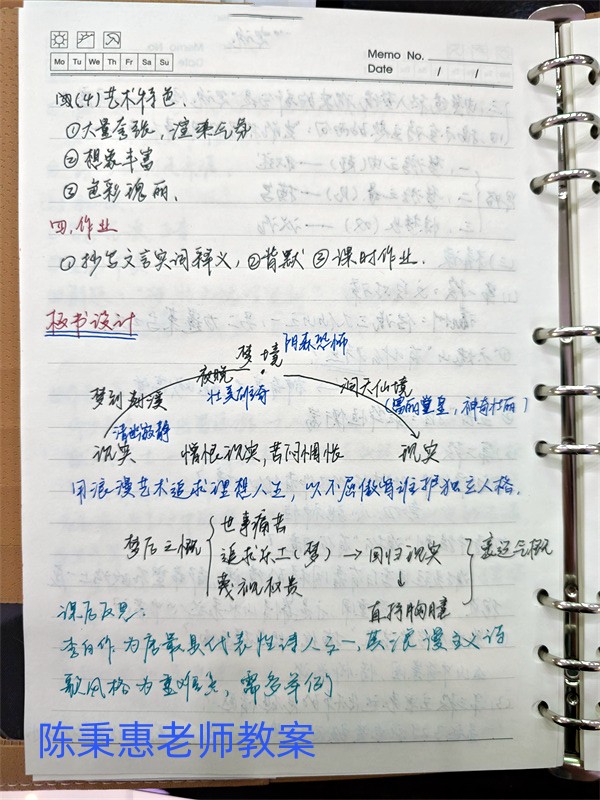 Memo No.
Mo Tu We Th Fr Sa Su
Date / /
(4)艺术特色.
①大量夸张,渲染气氛
②想象丰富
③色彩瑰丽.
四.作业
①抄写文言实词释义,②背默③课时作业.
板书设计
梦境 阴森恐怖
夜晚 洞天仙境
梦到剡溪 壮美雄奇 (富丽堂皇,神奇壮丽)
清幽寂静
现实 愤恨现实,苦闷惆怅 现实
用浪漫艺术追求理想人生,以不屈傲骨维护独立人格.
世事痛苦
梦后之慨 追求(梦)→回归现实
蔑视权贵 ↓
直抒胸臆
课后反思:
李白作为唐最具代表性诗人之一,其浪漫主义诗
歌风格为重难点,需多举例
陈秉惠老师教案